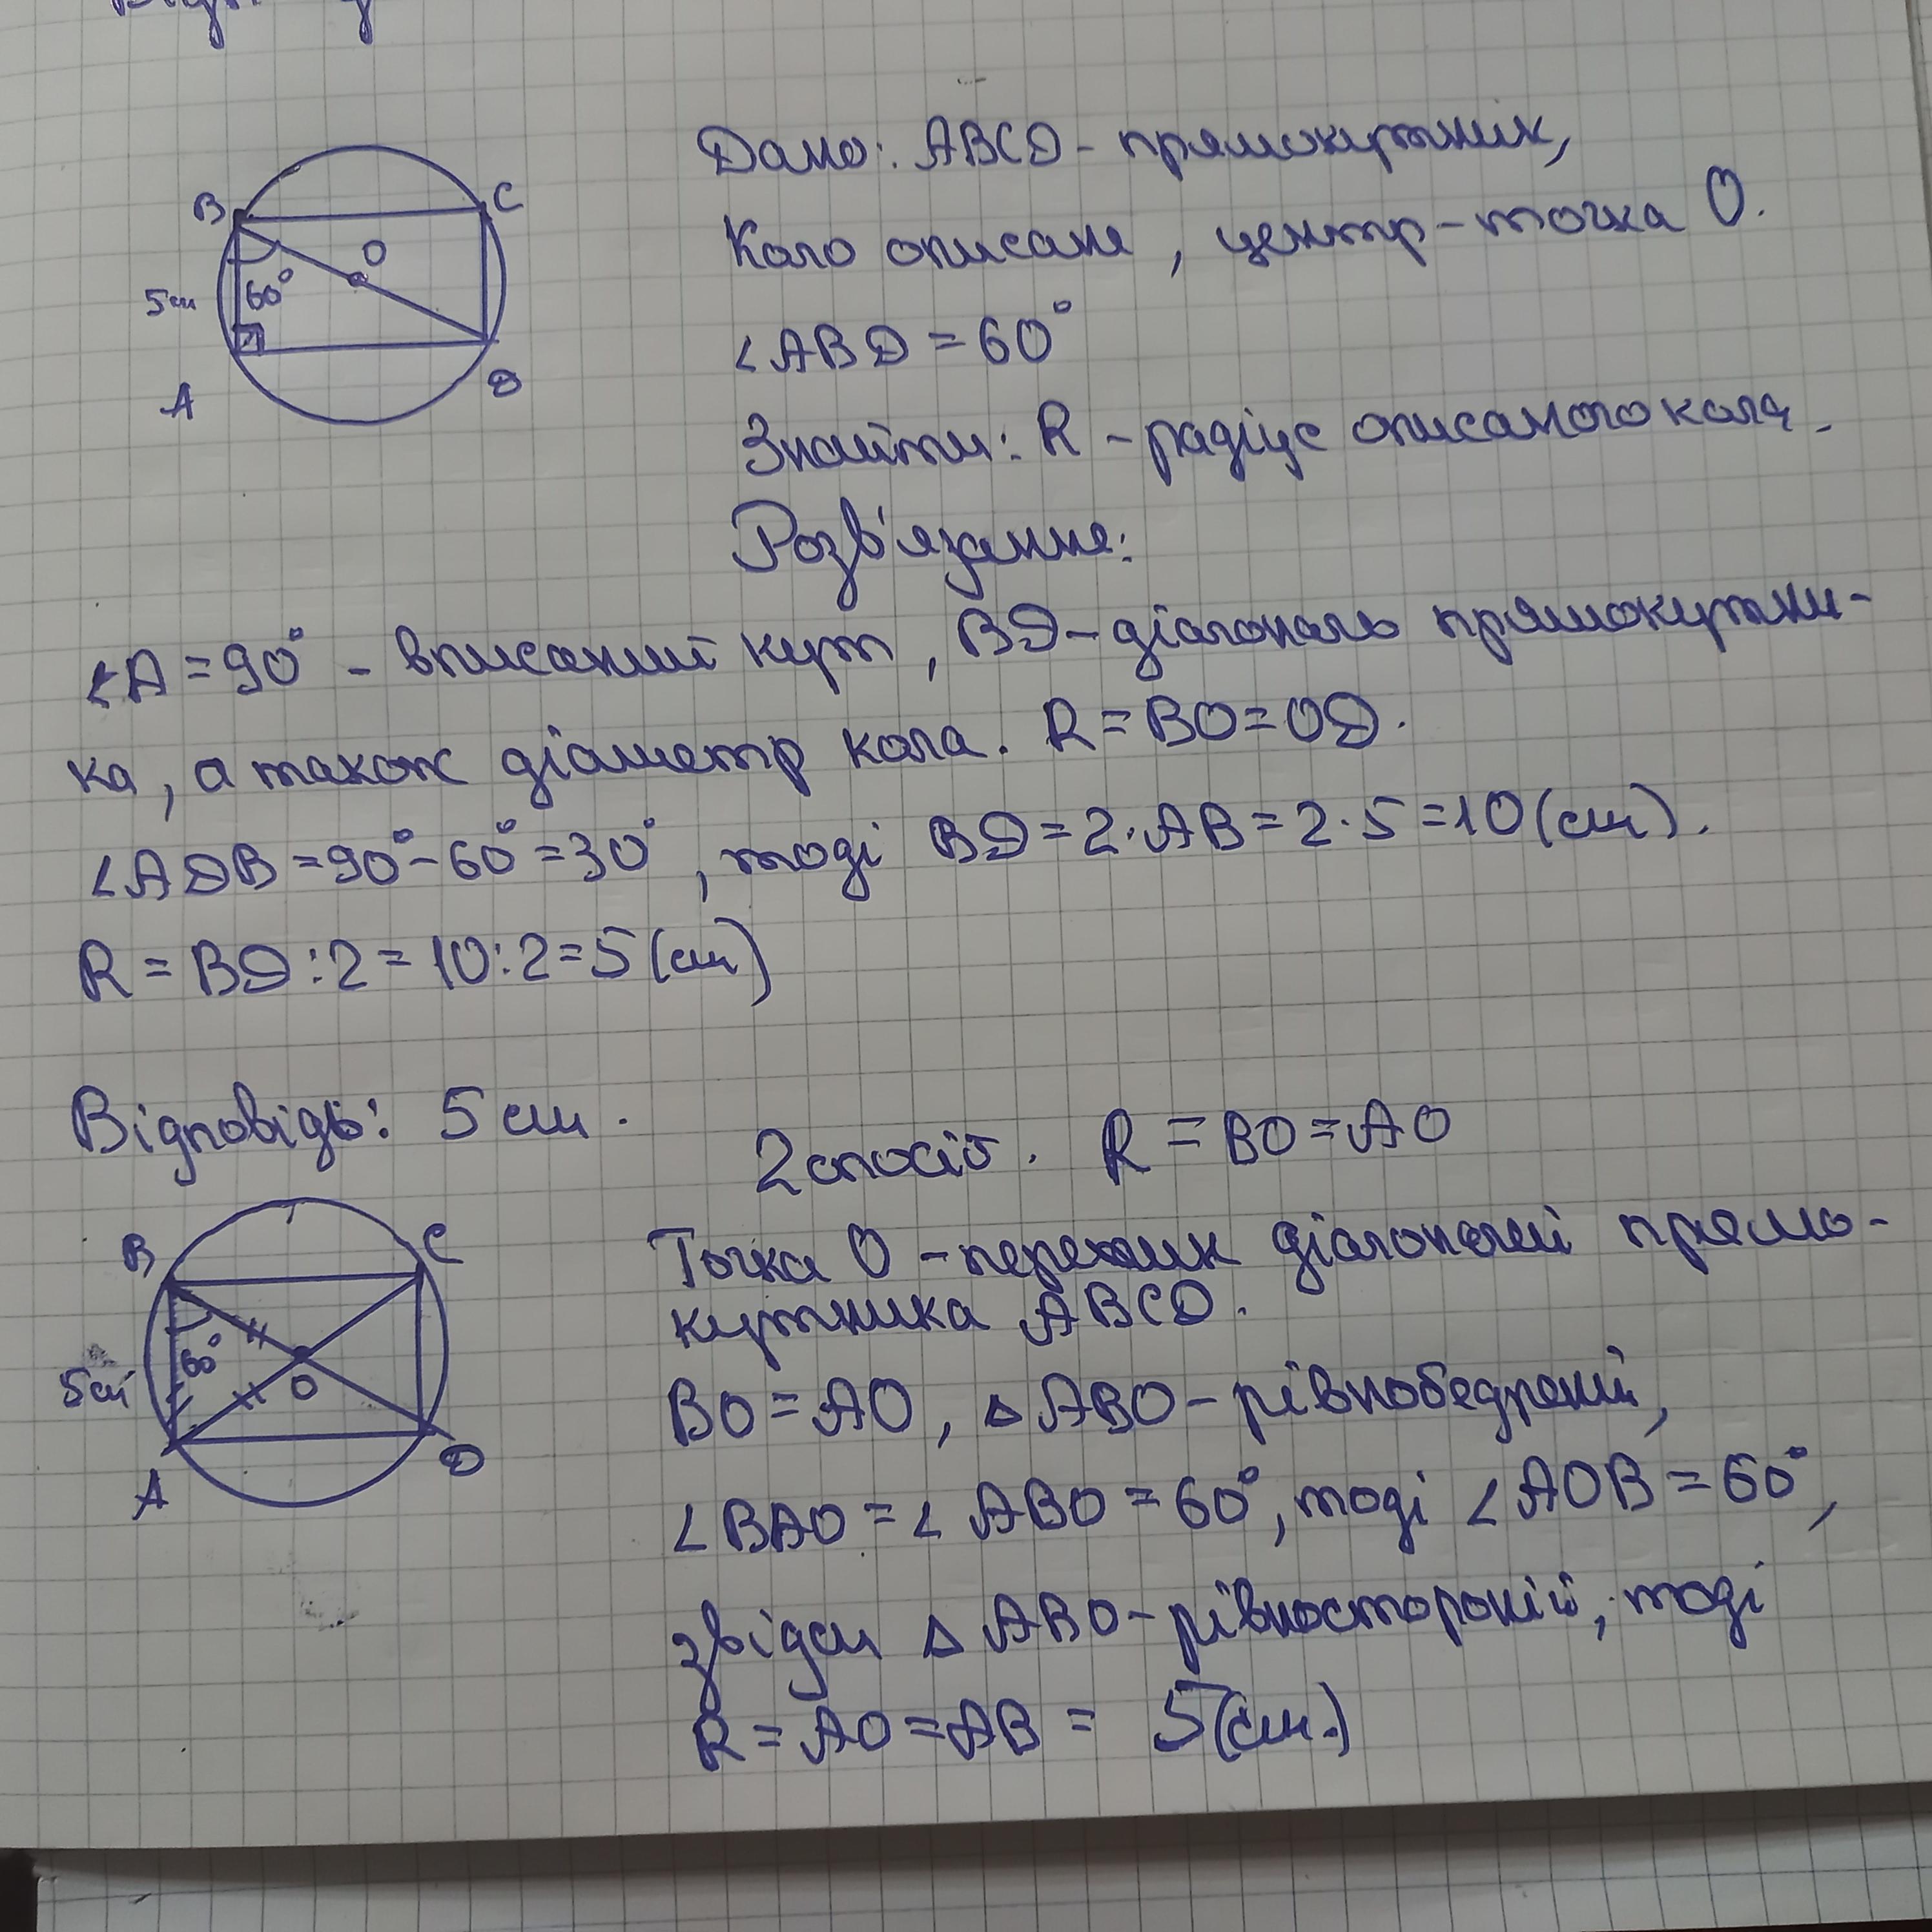 Дано: ABCD - прямокутник,
Коло описане, центр - точка O.
∠ABD = 60°
Знайти: R - радіус описаного кола.
Розв'язання:
B
C
O
60°
5см
A
D
∠A = 90° - вписаний кут, BD - діагональ прямокутни-
ка, а також діаметр кола. R = BO = OD.
∠ADB = 90° - 60° = 30°, тоді BD = 2·AB = 2·5 = 10 (см).
R = BD : 2 = 10 : 2 = 5 (см)
Відповідь: 5 см.
2 спосіб. R = BO = AO
B
C
60°
5см
O
A
D
Точка O - перетин діагоналей прямо-
кутника ABCD.
BO = AO, △ABO - рівнобедрений,
∠BAO = ∠ABO = 60°, тоді ∠AOB = 60°,
звідси △ABO - рівносторонній, тоді
R = AO = AB = 5 (см.)